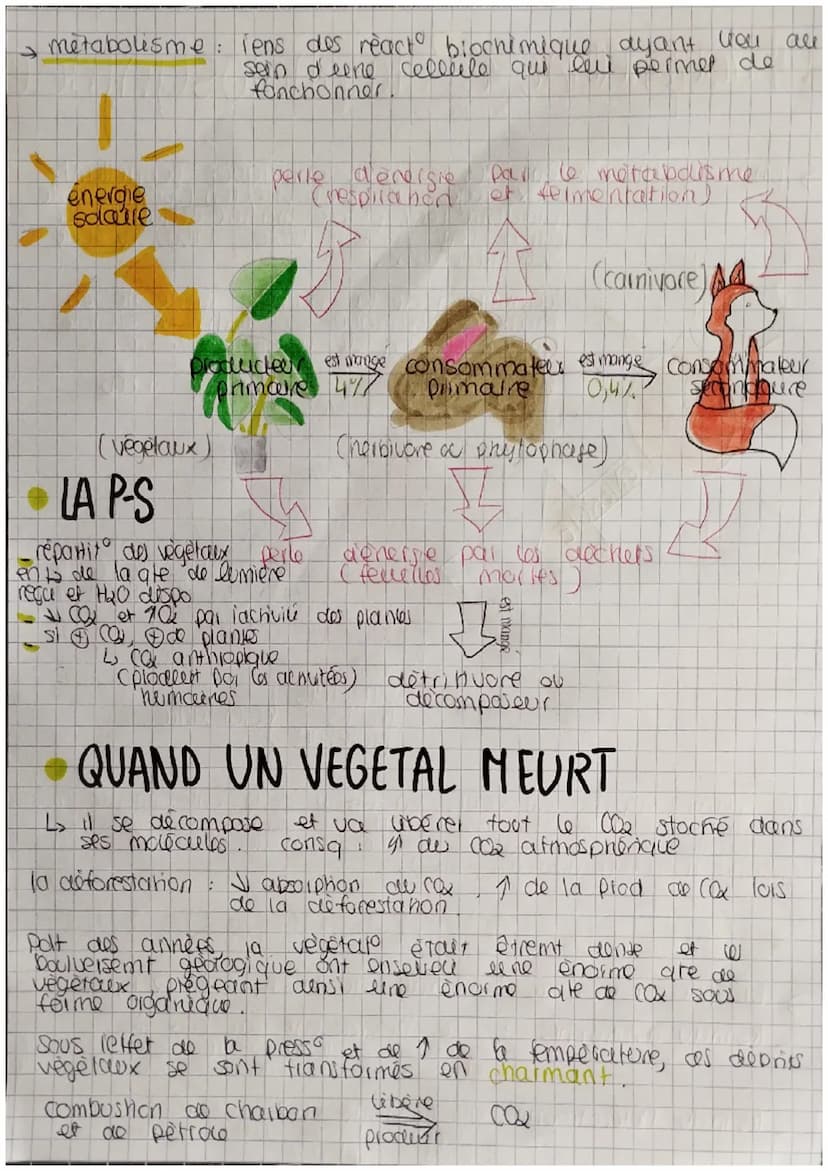 → métabolisme : l'ens des réact° biochimique ayant lieu au
sein d'une cellule qui lui permet de
fonctionner.
énergie
solaire
perte d'énergie par le métabolisme
(respiration et fermentation)
(carnivore)
producteur
primaire
est mangé
4%
consommateur
primaire
est mangé
0,4%
consommateur
secondaire
(végétaux)
(herbivore ou phytophage)
• LA P-S
– répartit° des végétaux
en de la qte de lumière
reçu et H2O dispo
perte d'énergie par les déchets
(feuilles mortes)
– ↓ CO2 et ↑O2 par l'activité des plantes
– si ⊕ CO2, ⊕ de plantes
↳ CO2 anthropique
(produit par les activités)
humaines
est mangé
détritivore ou
décomposeur
• QUAND UN VEGETAL MEURT
↳ il se décompose et va libérer tout le CO2 stocké dans
ses molécules. consq : ↑ du CO2 atmosphérique
la déforestation : ↓ absorption du CO2, ↑ de la prod de CO2 lors
de la déforestation.
Pdt des années, la végétat° était dense et les
boulversemt géologique ont enseveli une énorme qte de
végétaux, piégeant ainsi une énorme qte de CO2 sous
forme organique.
Sous l'effet de la press° et de ↑ de la température, ces débris
végétaux se sont transformés en charmant.
combustion de charbon
et de pétrole
libère
produit
CO2